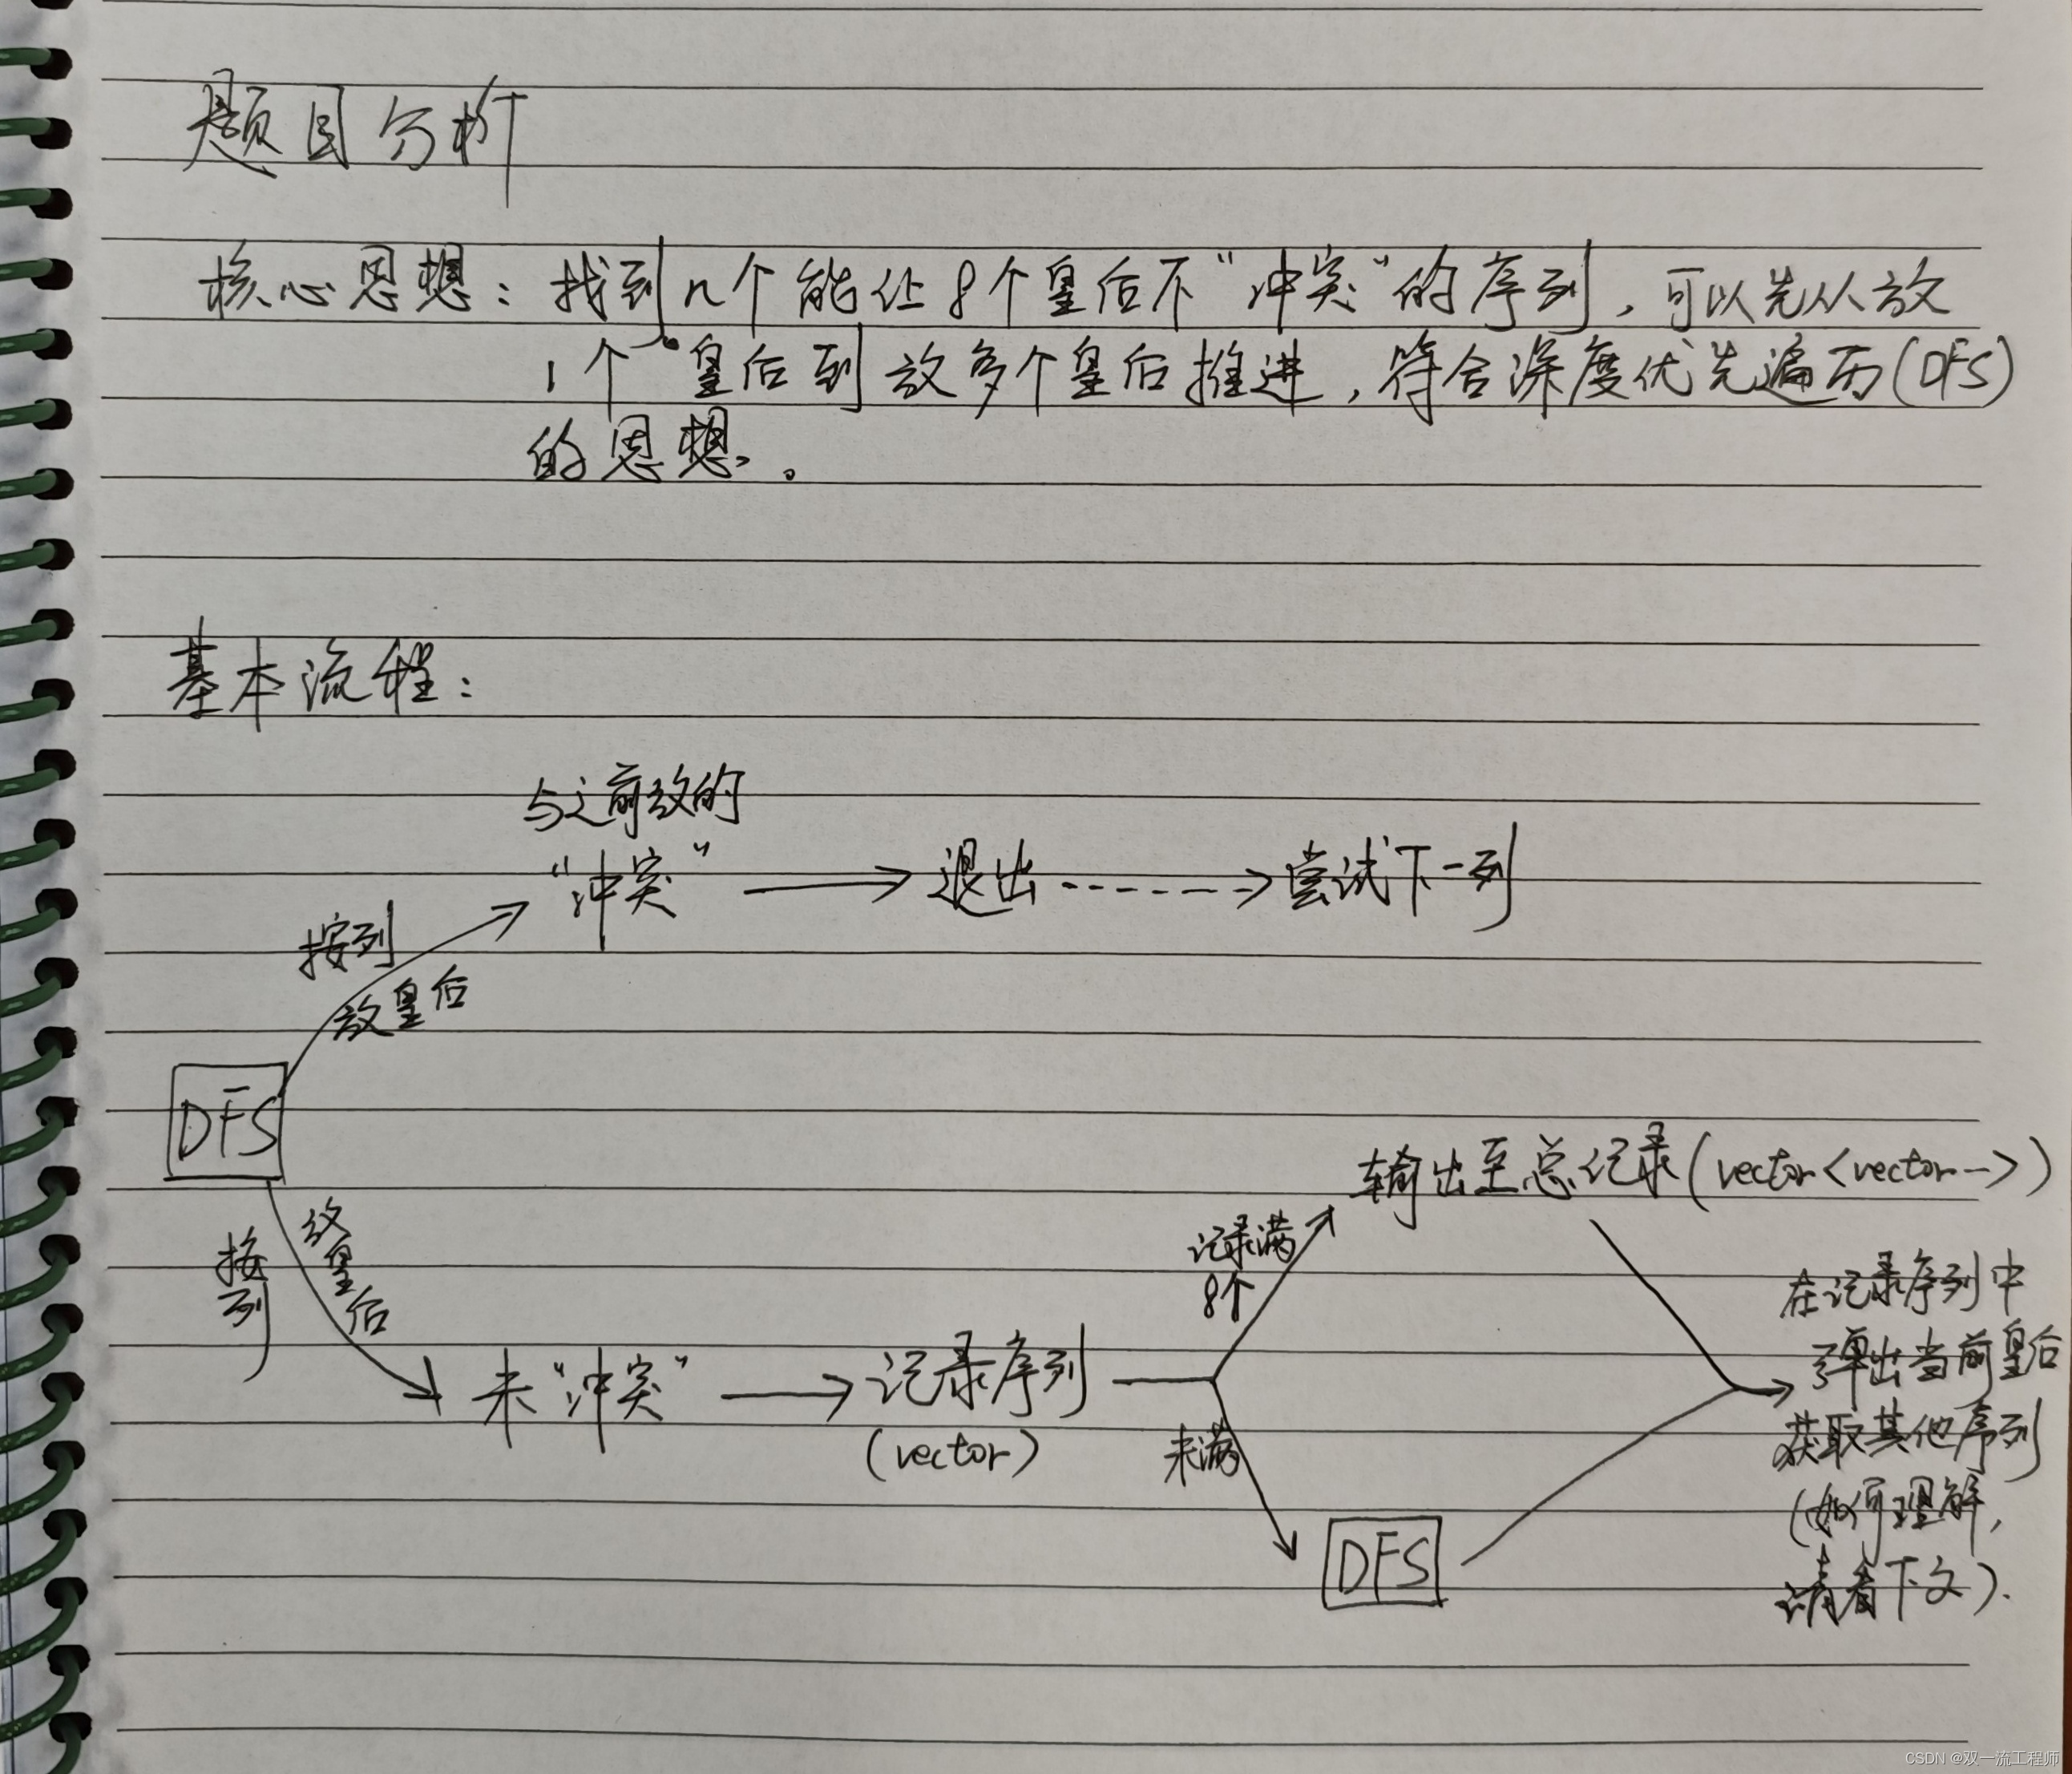 题目分析
核心思想：找到n个能让8个皇后不“冲突”的序列，可以先从放
1个皇后到放多个皇后推进，符合深度优先遍历(DFS)
的思想。
基本流程：
与之前放的
“冲突”
退出
尝试下一列
按列
放皇后
DFS
按列
放皇后
未“冲突”
记录序列
(vector)
记录满
8个
未满
输出至总记录(vector<vector->)
DFS
在记录序列中
弹出当前皇后
获取其他序列
(如何理解，
请看下文).
CSDN @双一流工程师